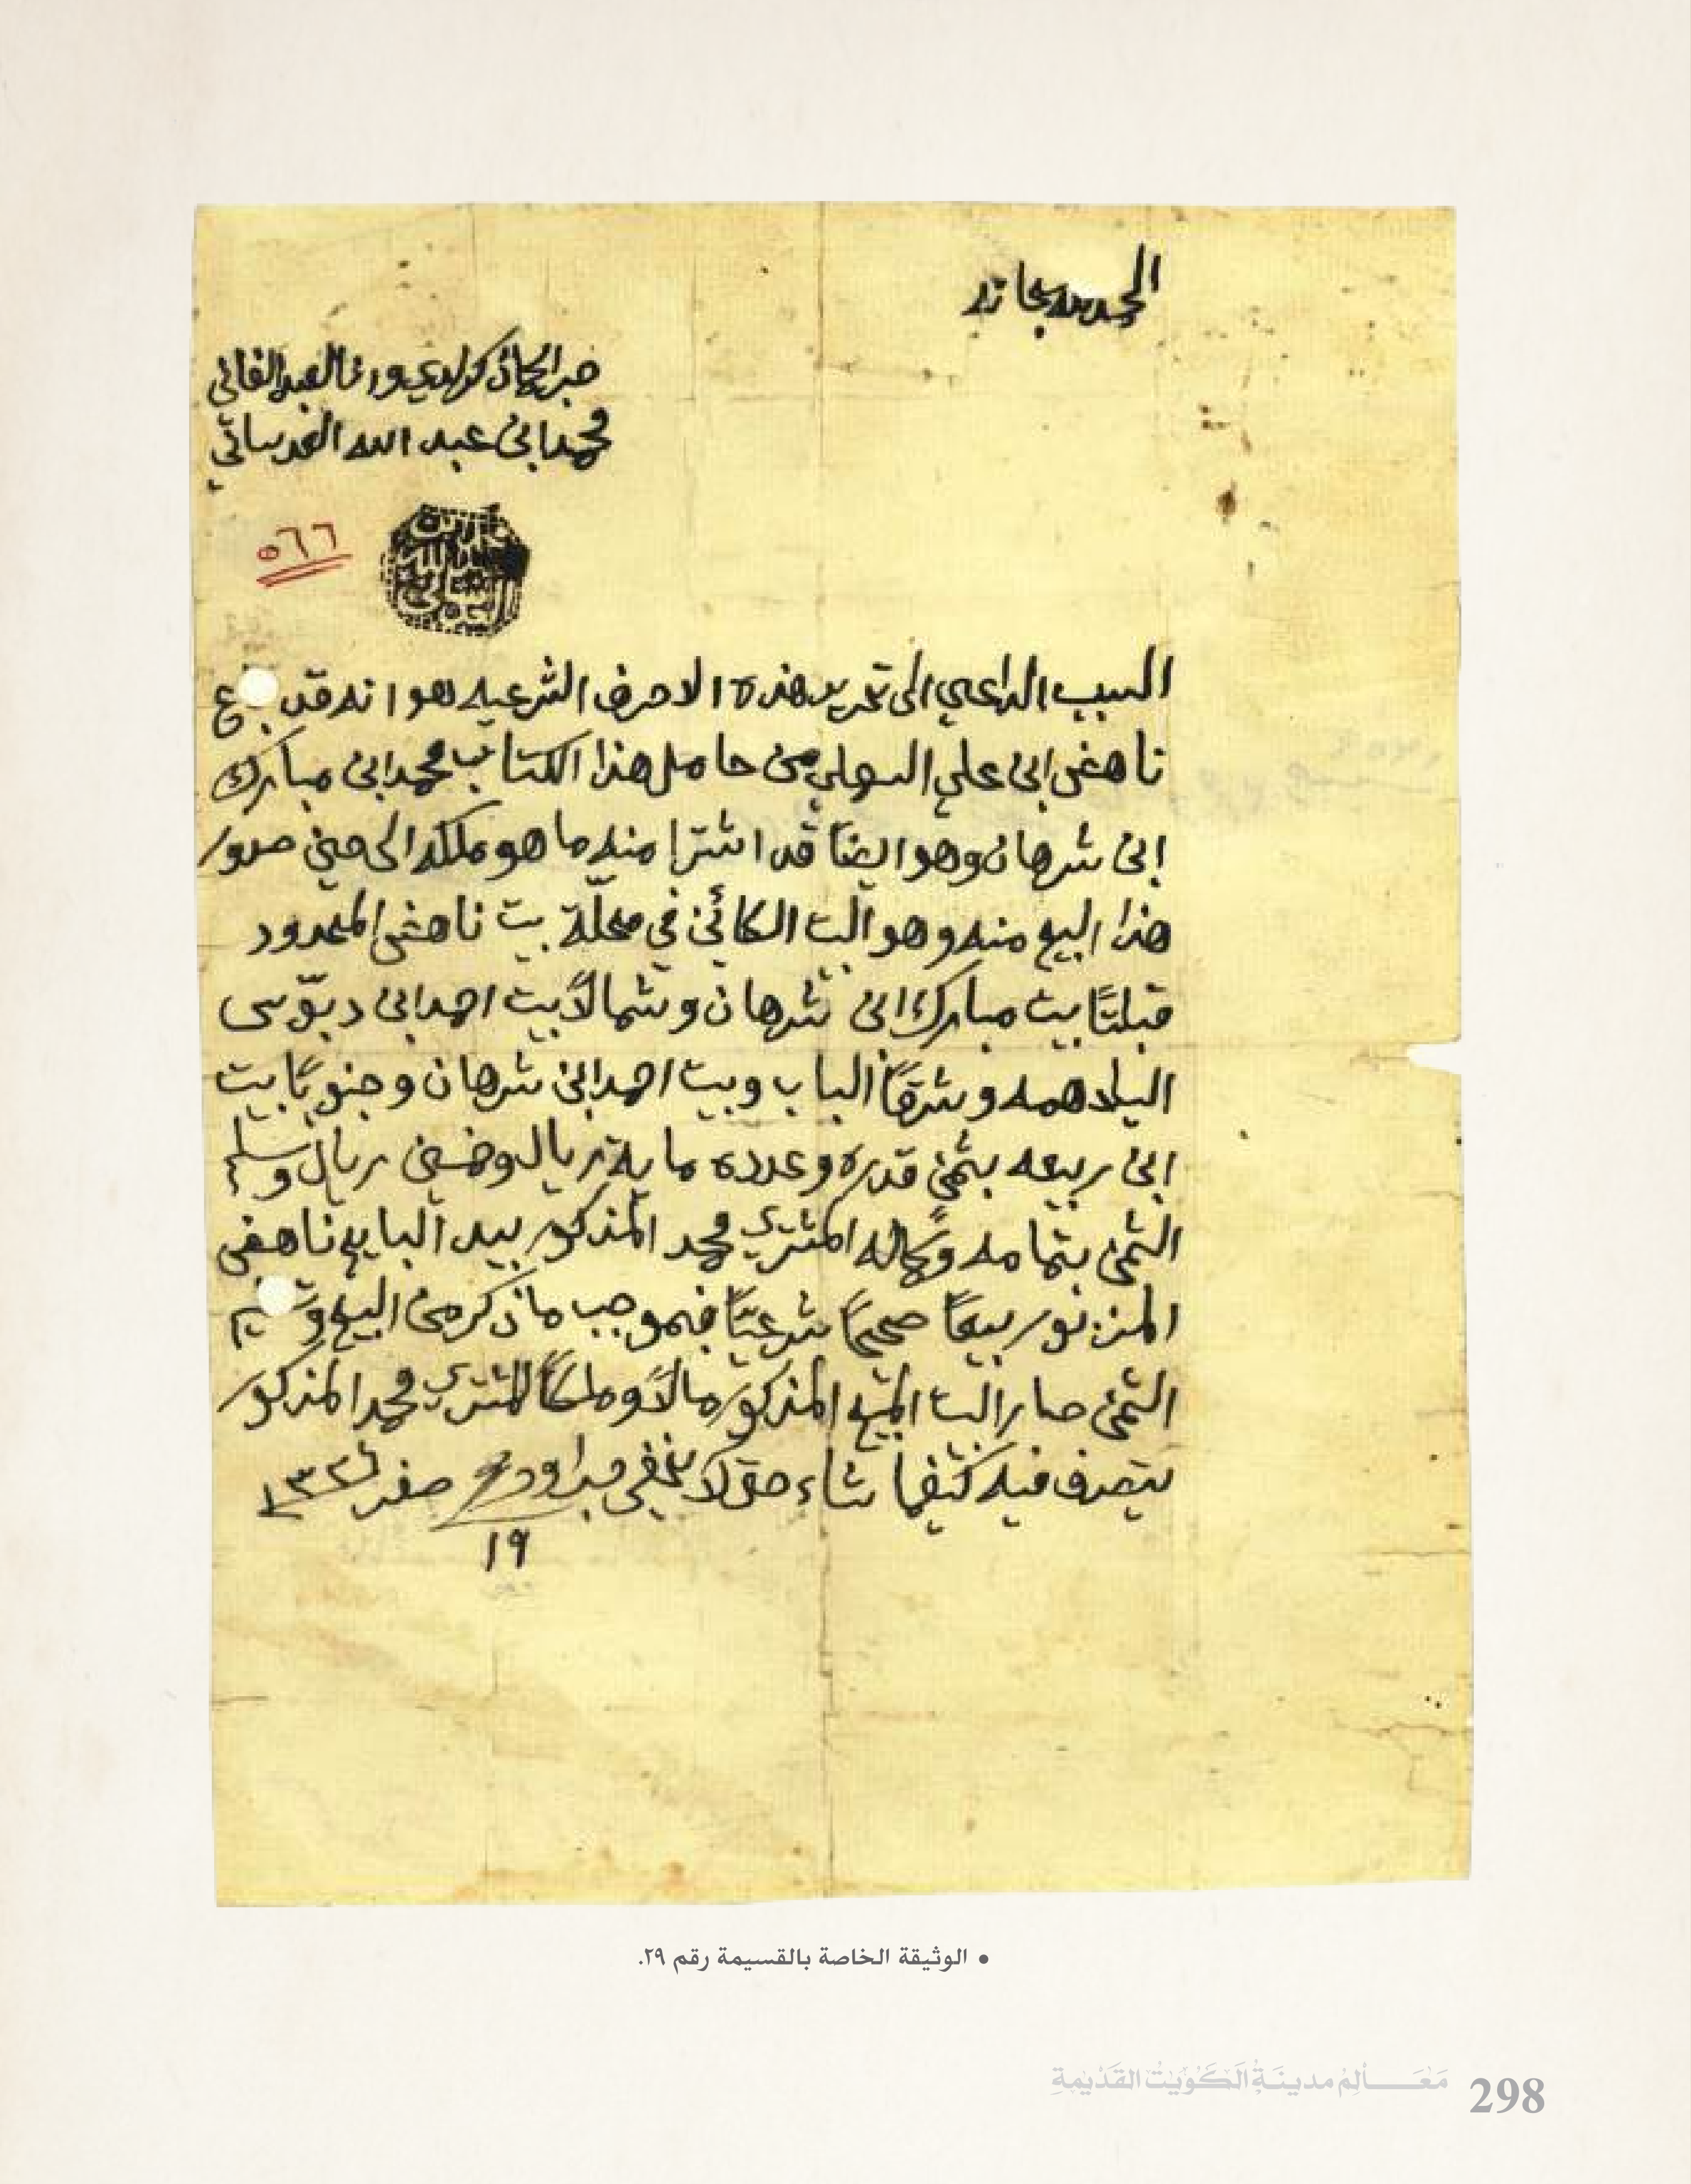 الحمد لله سبحانه
جرا كما ذكر لدي وانا العبد الفاني
محمد ابن عبد الله العدساني
٥٦٦
السبب الداعي الى تحرير هذه الاحرف الشرعيه هو انه قد باع
ناهض ابن علي السهلي من حامل هذا الكتاب محمد ابن مبارك
ابن شرهان وهو ايضًا قد اشترا منه ما هو ملكه الى حين صدور
هذا البيع منه وهو البيت الكائن في محلّة بيت ناهض المحدود
قبلتًا بيت مبارك ابن شرهان وشمالًا بيت احمد ابن دبّوس
البلادهمه وشرقًا الباب وبيت احمد ابن شرهان وجنوبًا بيت
ابن ربيعه بثمن قدره وعدده ماية ريال وخمسين ريال وسلم
الثمن بتمامه وكماله المشتري محمد المذكور بيد البايع ناهض
المزبور بيعًا صحيحًا شرعيًا فبموجب ما ذكر من البيع وتسليم
الثمن صار البيت المبيع المذكور مالًا وملكًا للمشتري محمد المذكور
يتصرف فيه كيفما شاء حتى لا يخفى جرا وحرر صفر ١٣٢٤
١٩
• الوثيقة الخاصة بالقسيمة رقم ٢٩.
مَعَالِمُ مدينَةِ الكُوَيْت القَدْيمَةِ
298